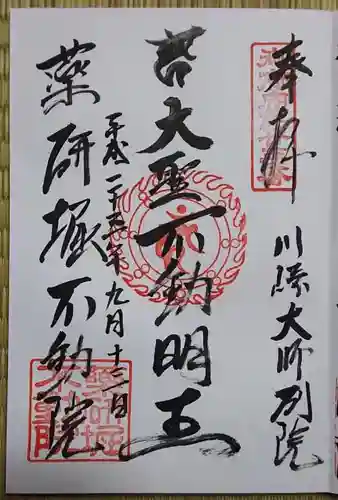 奉拝
川崎大師別院
大聖不動明王
平成二十五年九月十三日
薬研堀不動院